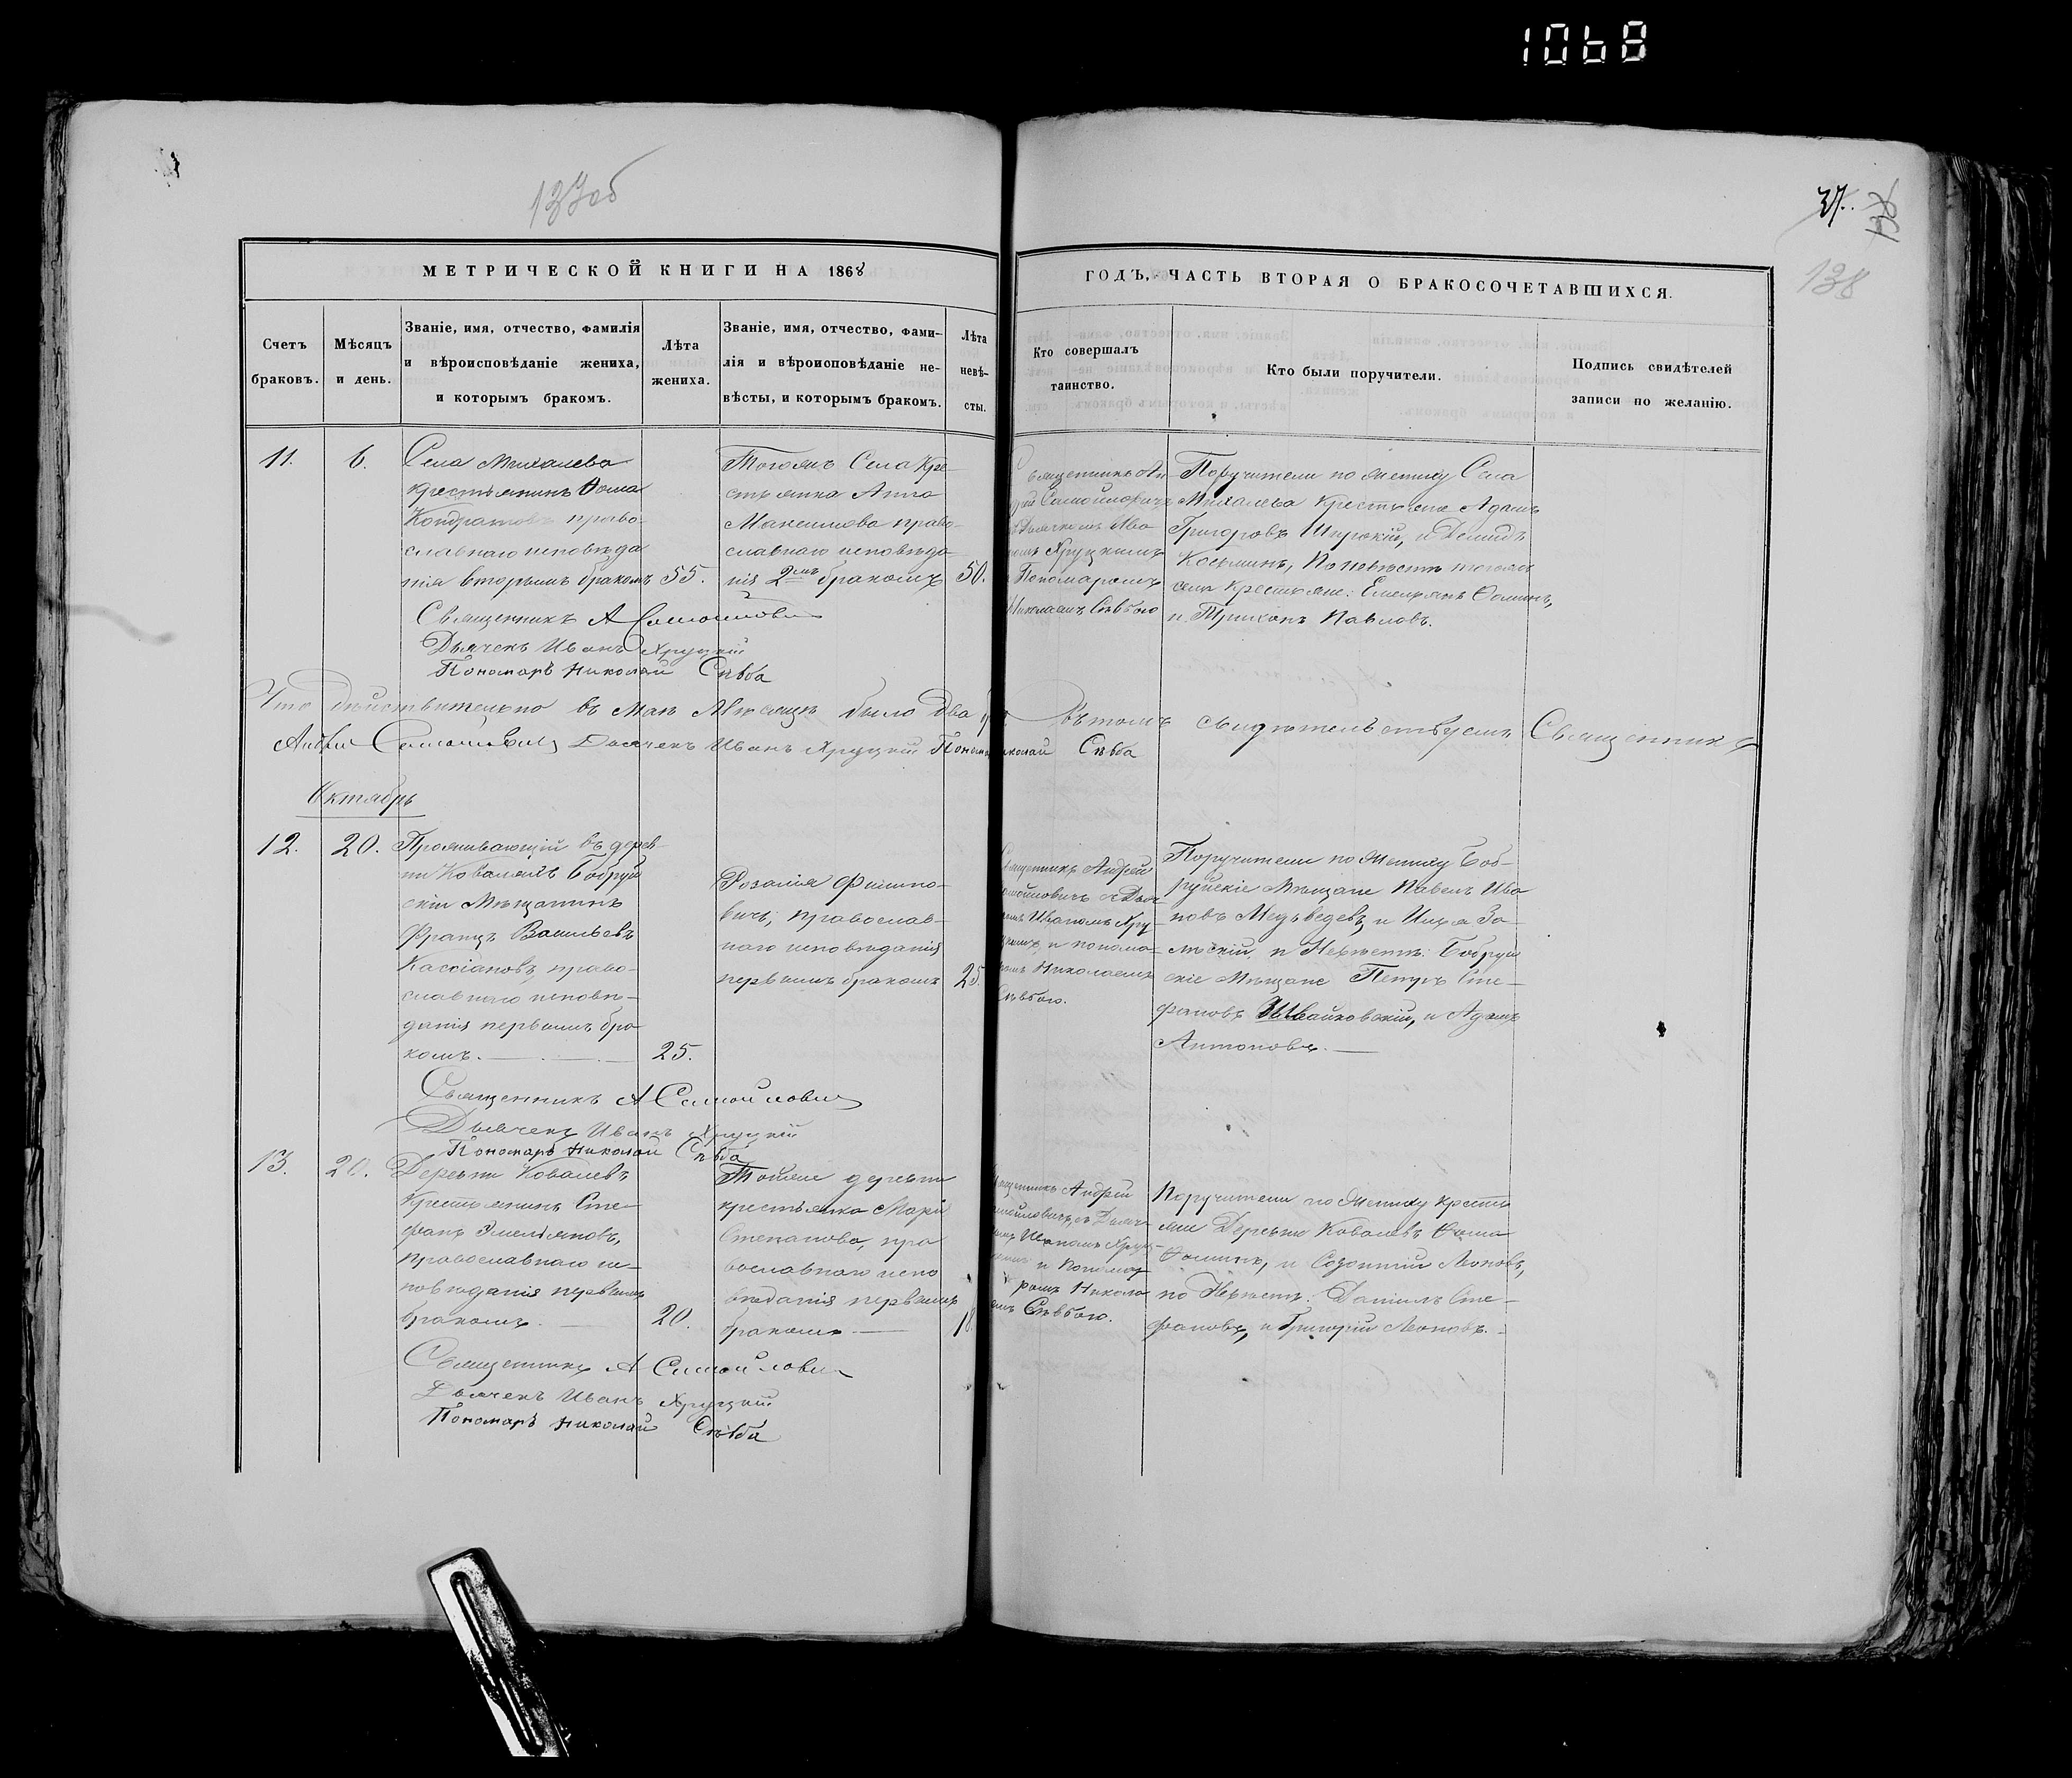 1068
137об
37.
138
МЕТРИЧЕСКОЙ КНИГИ НА 1868
ГОДЪ, ЧАСТЬ ВТОРАЯ О БРАКОСОЧЕТАВШИХСЯ.
Счетъ
браковъ.
Мѣсяцъ
и день.
Званіе, имя, отчество, фамилія
и вѣроисповѣданіе жениха,
и которымъ бракомъ.
Лѣта
жениха.
Званіе, имя, отчество, фами-
лія и вѣроисповѣданіе не-
вѣсты, и которымъ бракомъ.
Лѣта
невѣ-
сты.
Кто совершалъ
таинство.
Кто были поручители.
Подпись свидѣтелей
записи по желанію.
11.
6.
Села Михалева
крестьянинъ Ѳома
Кондратовъ право-
славнаго исповѣда
нія вторымъ бракомъ
55.
Тогожъ Села Кре-
стьянка Анна
Максимова право-
славнаго исповѣда-
нія 2мъ бракомъ
50.
Священникъ Ан
дрей Самойловичъ
Дьячкомъ Ива
номъ Хруцкимъ
Пономаромъ
Николаемъ Сѣвбою
Поручители по жениху Села
Михалева крестьяне Адамъ
Григоровъ Широкій, и Демидъ
Косьминъ, По невѣстѣ тогожъ
села крестьяне: Емельянъ Ѳоминъ,
и Трихонъ Павловъ.
Священникъ А Самойловичъ
Дьячекъ Иванъ Хруцкій
Пономаръ Николай Сѣвба
Что дѣйствительно въ Маѣ Мѣсяцѣ было два въ томъ свидѣтельствуемъ Священникъ
Андрей Самойловичъ Дьячекъ Иванъ Хруцкій Пономаръ Николай Сѣвба
Октябрь
12.
20.
Проживающій въ дерев-
ни Коваляхъ Бобруй
скій Мѣщанинъ
Францъ Васильевъ
Кассіановъ, право-
славнаго исповѣ-
данія первымъ бра
комъ.
25.
Розалія Филипо-
вичъ, православ-
наго исповѣданія
первымъ бракомъ
25.
Священникъ Андрей
Самойловичъ съ Дьяч-
комъ Иваномъ Хру-
цкимъ, и понома-
ромъ Николаемъ
Сѣвбою.
Поручители по жениху Боб-
руйскіе Мѣщане Павелъ Ива
новъ Медведевъ, и За-
лѣскій, и Невѣстѣ: Бобруй
скіе Мѣщане Петръ Сте-
фановъ Швайковскій, и Адамъ
Антоновъ.
Священникъ А Самойловичъ
Дьячекъ Иванъ Хруцкій
Пономаръ Николай Сѣвба
13.
20.
Деревни Ковалевъ
Крестьянинъ Сте-
фанъ Эмельяновъ,
православнаго ис-
повѣданія первымъ
бракомъ.
20.
Тойже деревни
крестьянка Марія
Степанова, пра
вославнаго испо
вѣданія первымъ
бракомъ
18.
Священникъ Андрей
Самойловичъ, съ Дьячк
омъ Иваномъ Хруц-
кимъ и Поном
ромъ Никола
емъ Сѣвбою.
Поручители по Жениху крестья
яне Деревни Ковалевъ Ѳома
Ѳоминъ, и Леоновъ,
по Невѣстѣ: Даніилъ Сте-
фановъ, и Григорій Леоновъ.
Священникъ А Самойловичъ
Дьячекъ Иванъ Хруцкій
Пономаръ Николай Сѣвба